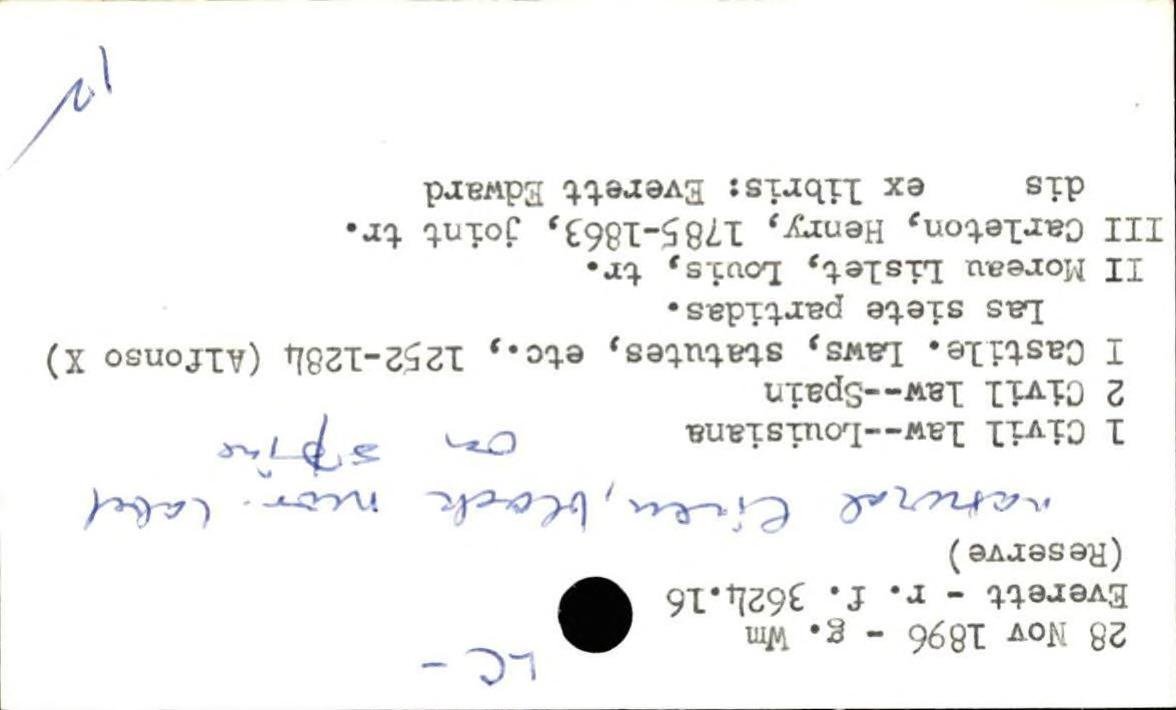 LC -
28 Nov 1896 - g. Wm
Everett - r. f. 3624.16
(Reserve)
natural linen, black mor. label
on spine
1 Civil law--Louisiana
2 Civil law--Spain
I Castile. Laws, statutes, etc., 1252-1284 (Alfonso X)
Las siete partidas.
II Moreau Lislet, Louis, tr.
III Carleton, Henry, 1785-1863, joint tr.
dis ex libris: Everett Edward